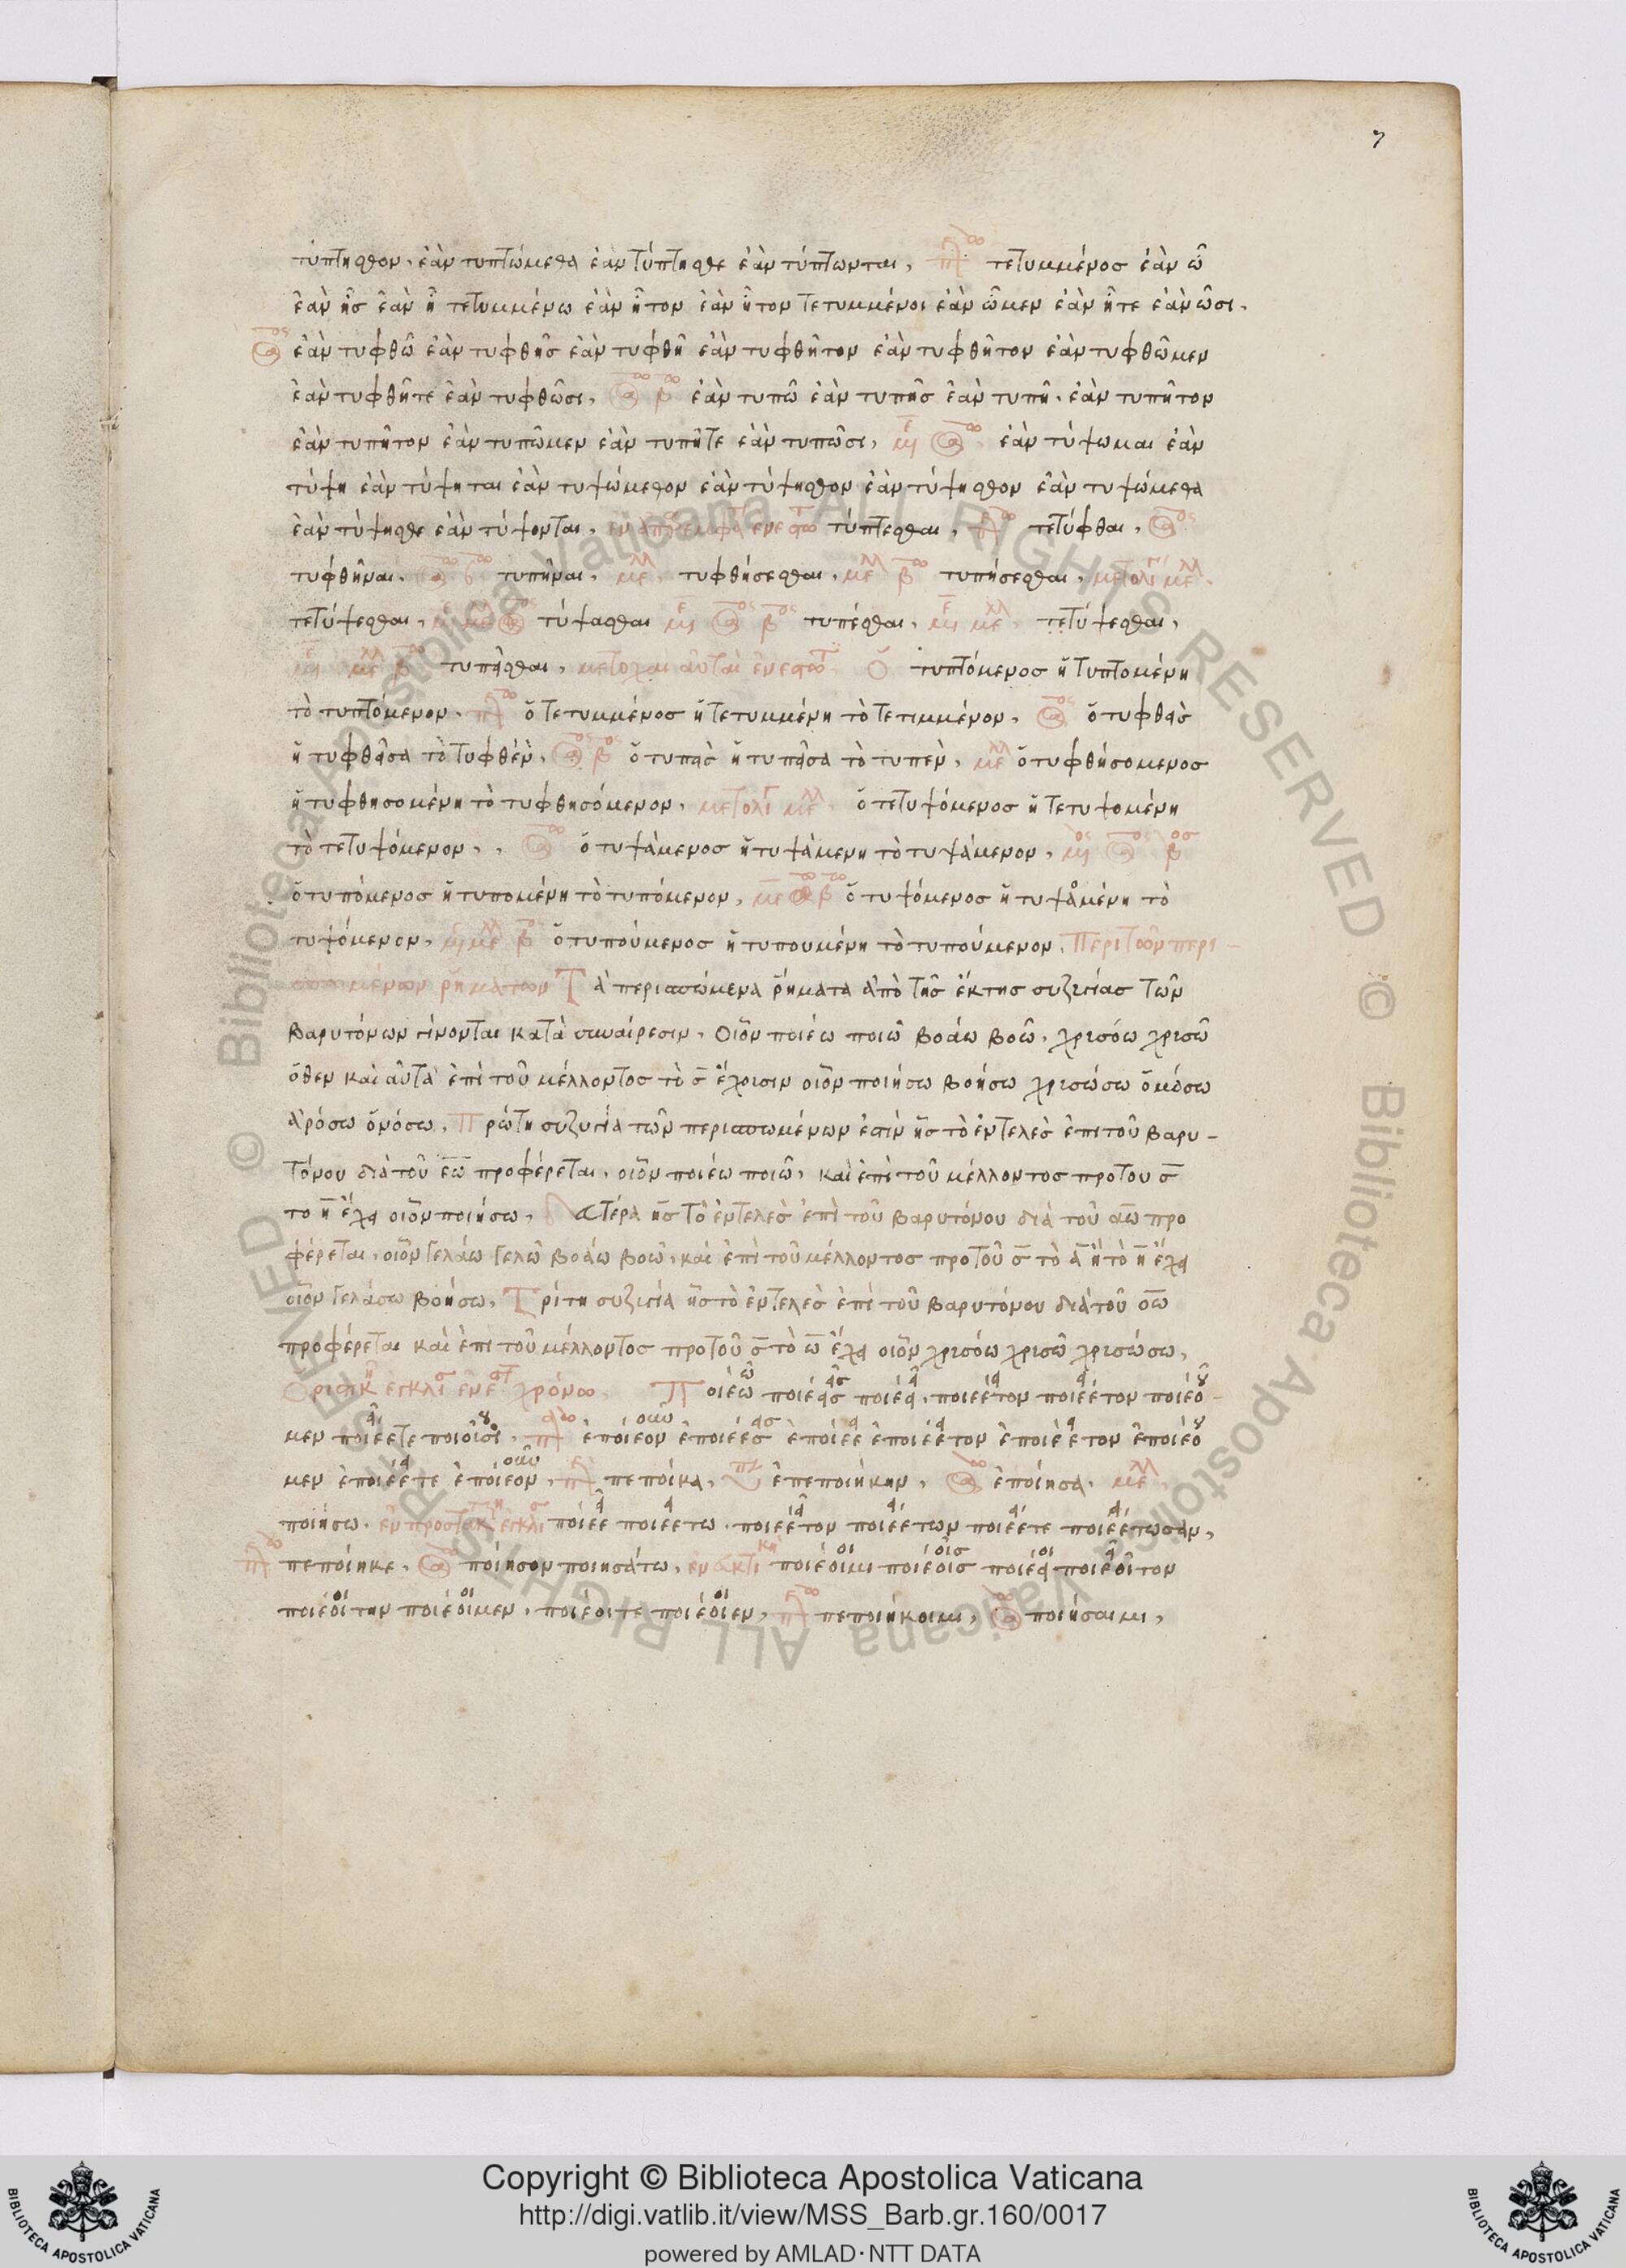 7
τύπτησθον, ἐὰν τυπτώμεθα ἐὰν τύπτησθε ἐὰν τύπτωνται, τετυμμένος ἐὰν ὦ
ἐὰν ἦς ἐὰν ἦ τετυμμένω ἐὰν ἦτον ἐὰν ἦτον τετυμμένοι ἐὰν ὦμεν ἐὰν ἦτε ἐὰν ὦσι.
ἐὰν τυφθῶ ἐὰν τυφθῆς ἐὰν τυφθῆ ἐὰν τυφθῆτον ἐὰν τυφθῆτον ἐὰν τυφθῶμεν
ἐὰν τυφθῆτε ἐὰν τυφθῶσι, β ἐὰν τυπῶ ἐὰν τυπῆς ἐὰν τυπῆ, ἐὰν τυπῆτον
ἐὰν τυπῆτον ἐὰν τυπῶμεν ἐὰν τυπῆτε ἐὰν τυπῶσι, ἐὰν τύψωμαι ἐὰν
τύψη ἐὰν τύψηται ἐὰν τυψώμεθον ἐὰν τύψησθον ἐὰν τύψησθον ἐὰν τυψώμεθα
ἐὰν τύψησθε ἐὰν τύψονται, τύπτεσθαι, τετύφθαι,
τυφθῆναι, τυπῆναι, με^λλ τυφθήσεσθαι, με^λλ β τυπήσεσθαι, μετολί με^λλ
τετύψεσθαι, τύψασθαι β τυπέσθαι, με^λλ τετύψεσθαι,
με^λλ β τυπεῖσθαι, μετοχαὶ αὗται ἐνεστῶτ Ὁ τυπτόμενος ἡ τυπτομένη
τὸ τυπτόμενον, ὁ τετυμμένος ἡ τετυμμένη τὸ τετιμμένον, ὁ τυφθεὶς
ἡ τυφθεῖσα τὸ τυφθέν, β ὁ τυπεὶς ἡ τυπεῖσα τὸ τυπεν, με^λλ ὁ τυφθησόμενος
ἡ τυφθησομένη τὸ τυφθησόμενον, μετολί με^λλ ὁ τετυψόμενος ἡ τετυψομένη
τὸ τετυψόμενον, , ὁ τυψάμενος ἡ τυψάμενη τὸ τυψάμενον, β
ὁ τυπόμενος ἡ τυπομένη τὸ τυπόμενον, β ὁ τυψόμενος ἡ τυψομένη τὸ
τυψόμενον, με^λλ β ὁ τυπούμενος ἡ τυπουμένη τὸ τυπούμενον. Περὶ τῶν περι-
σπωμένων ῥημάτων Τὰ περισπώμενα ῥήματα ἀπὸ τῆς ἕκτης συζυγίας τῶν
βαρυτόνων γίνονται κατὰ συναίρεσιν, Οἷον ποιέω ποιῶ βοάω βοῶ, χρισόω χρισῶ
ὅθεν καὶ αὐτὰ ἐπὶ τοῦ μέλλοντος τὸ σ ἔχοισιν οἷον ποιήσω βοήσω χρισώσω ὀμόσω
ἀρόσω ὀνόσω, Πρώτη συζυγία τῶν περισπωμένων ἐστὶν ἧς τὸ ἐντελὲς ἐπι τοῦ βαρυ-
τόνου διὰ τοῦ εω προφέρεται, οἷον ποιέω ποιῶ, καὶ ἐπὶ τοῦ μέλλοντος προτου σ
το η ἔχει οἷον ποιήσω, Δευτέρα ἧς τὸ ἐντελὲς ἐπὶ τοῦ βαρυτόνου διὰ τοῦ αω προ
φέρεται, οἷον γελάω γελῶ βοάω βοῶ, καὶ ἐπὶ τοῦ μέλλοντος προτοῦ σ τὸ α ἢ τὸ η ἔχει
οἷον γελάσω βοήσω, Τρίτη συζιγία ἧς τὸ ἐντελὲς ἐπὶ τοῦ βαρυτόνου διὰ τοῦ οω
προφέρεται καὶ ἐπι τοῦ μέλλοντος προτοῦ σ τὸ ω ἔχει οἷον χρισόω χρισῶ χρισώσω,
χρόνου Ποιέω ποιέεις ποιέει, ποιέετον ποιέετον ποιέο-
μεν ποιέετε ποιοῖσι, ἐποίεον ἐποίεες ἐποίεε ἐποιέετον ἐποιέετον ἐποιέο
μεν ἐποιέετε ἐποίεον, πεποίκα, ἐπεποιήκην, ἐποίησα, με^λλ
ποιήσω, ποίεε ποιεέτω, ποιέετον ποιεέτων ποιέετε ποιεέτωσαν,
πεποίηκε, ποίησον ποιησάτω, ποιέοιμι ποιέοις ποιέοι ποιέοιτον
ποιεοίτην ποιέοιμεν, ποιέοιτε ποιέοιεν, πεποιήκοιμι, ποιήσαιμι,
Copyright © Biblioteca Apostolica Vaticana
http://digi.vatlib.it/view/MSS_Barb.gr.160/0017
powered by AMLAD·NTT DATA
BIBLIOTECA APOSTOLICA VATICANA
BIBLIOTECA APOSTOLICA VATICANA
© Biblioteca Apostolica Vaticana ALL RIGHTS RESERVED © Biblioteca Apostolica Vaticana ALL RIGHTS RESERVED